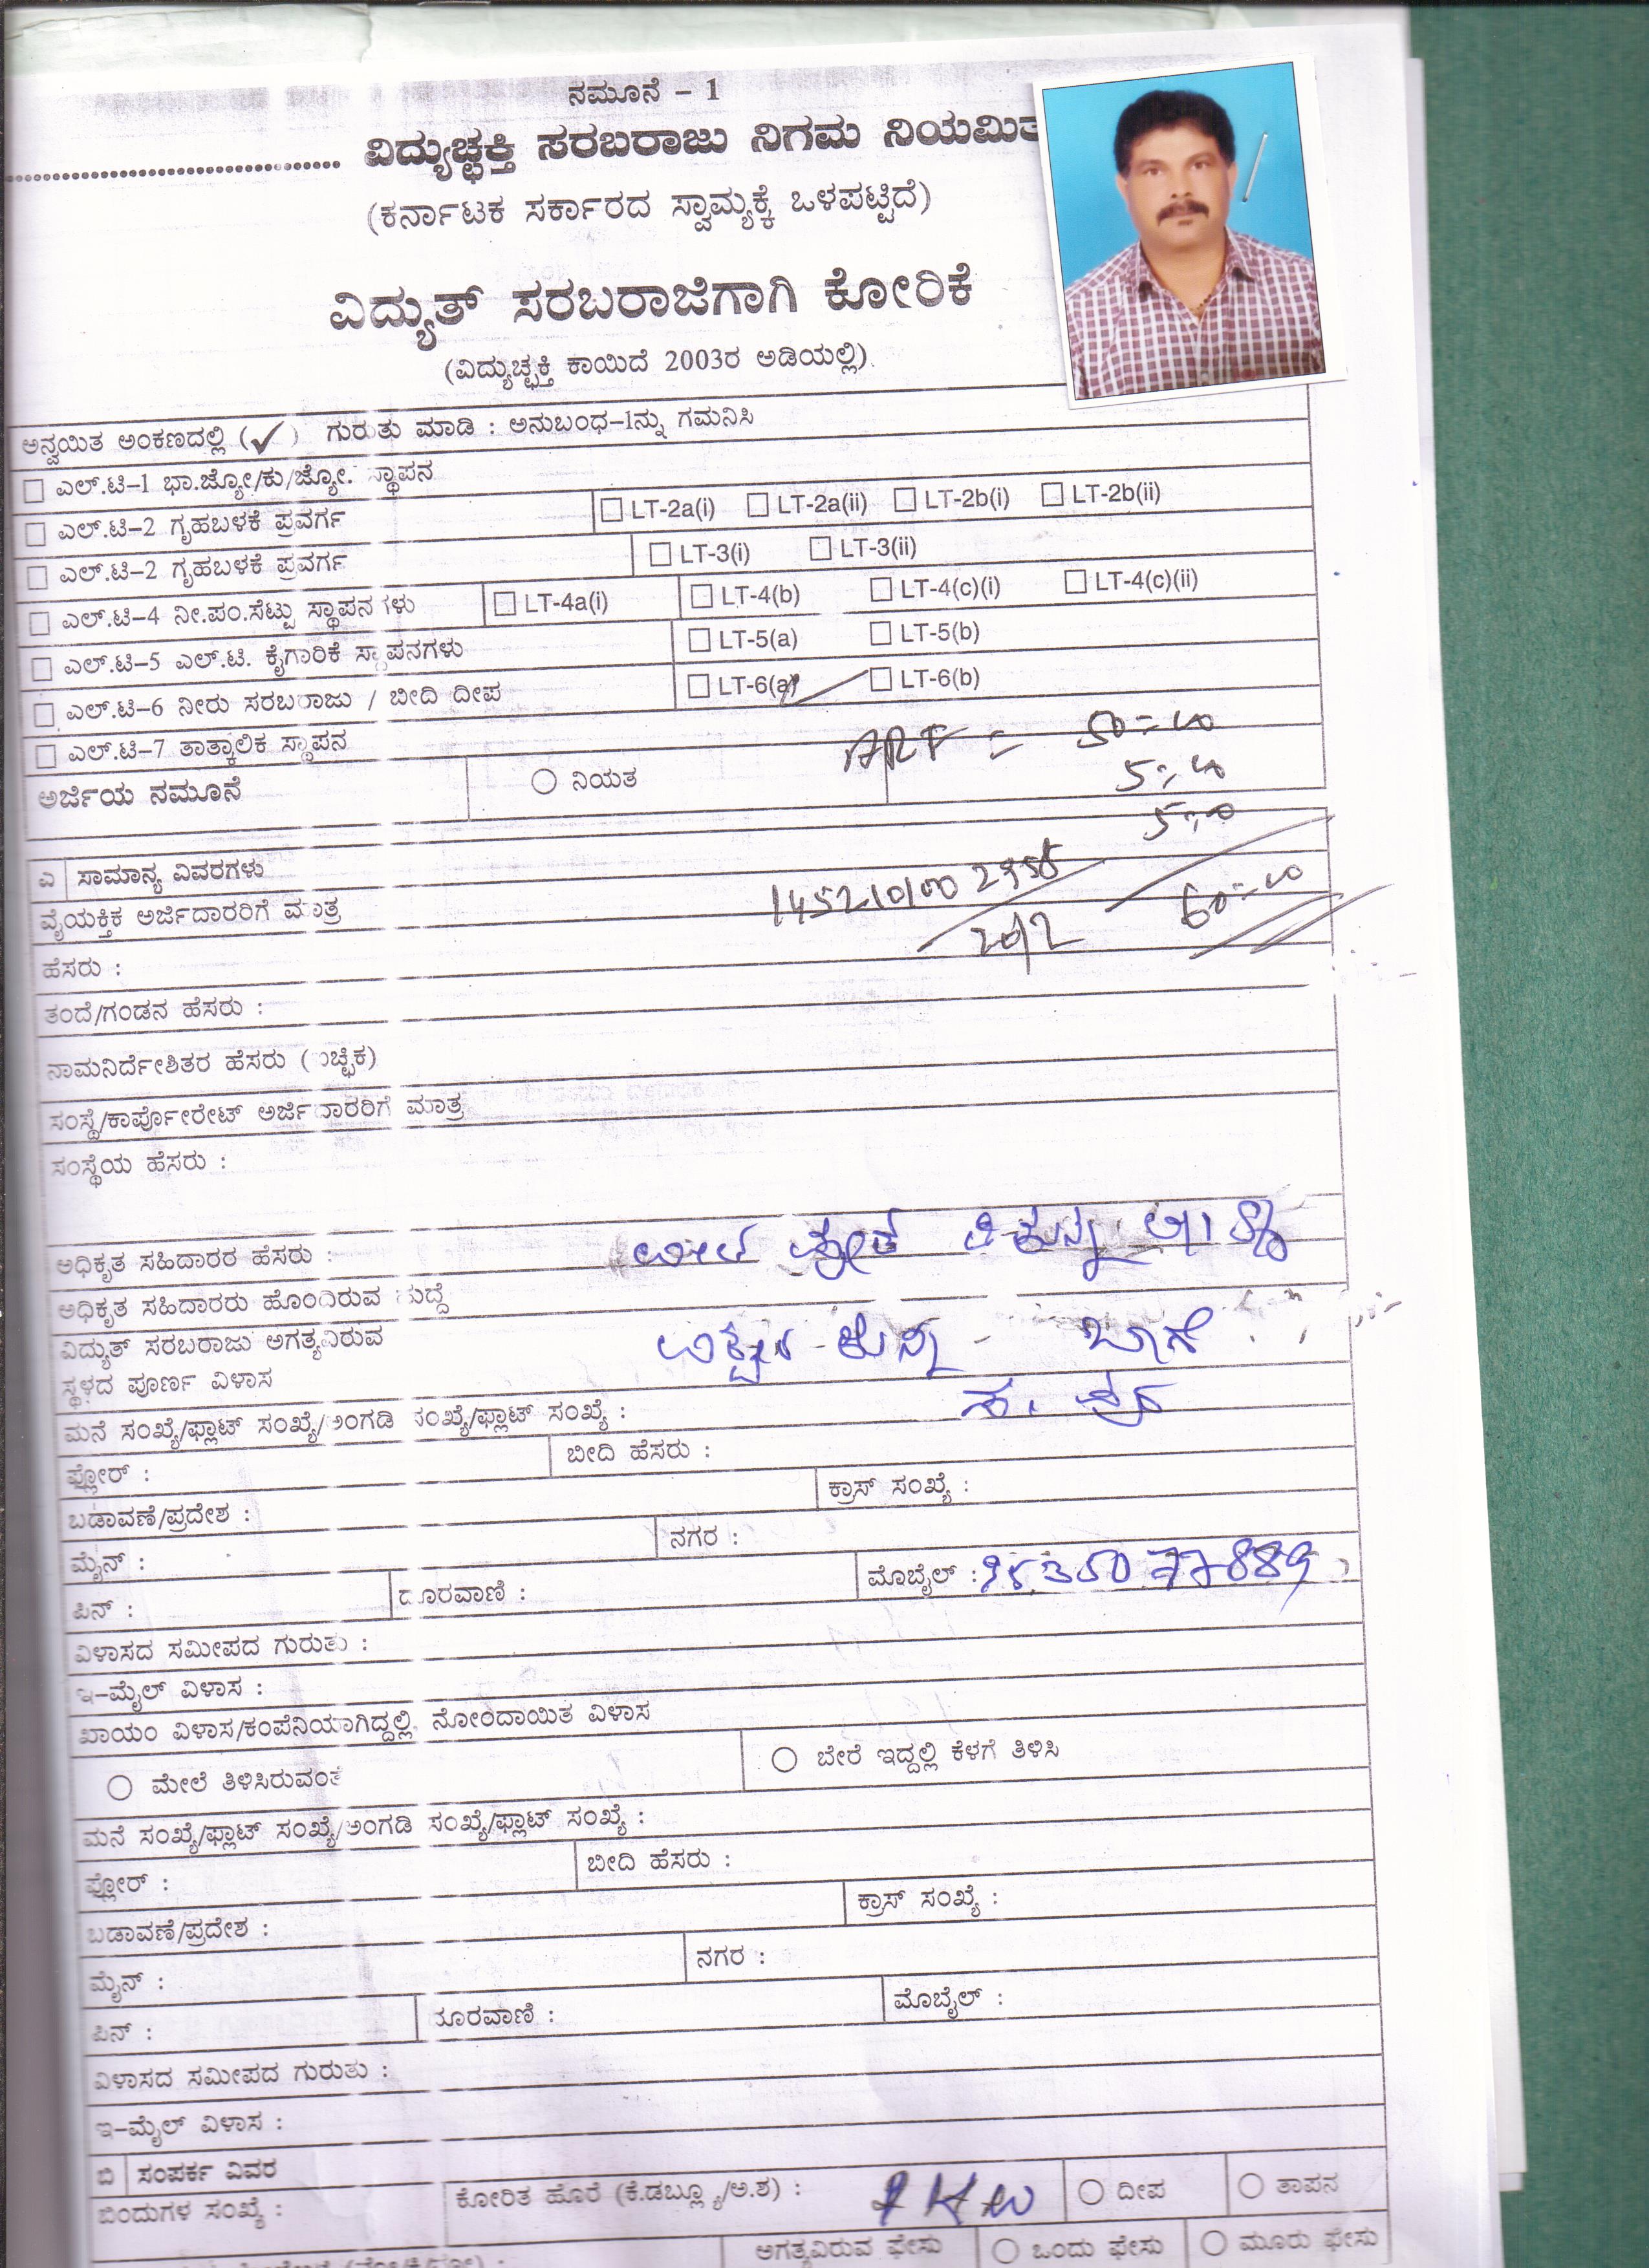 ನಮೂನೆ – 1
................................ ವಿದ್ಯುಚ್ಛಕ್ತಿ ಸರಬರಾಜು ನಿಗಮ ನಿಯಮಿತ
(ಕರ್ನಾಟಕ ಸರ್ಕಾರದ ಸ್ವಾಮ್ಯಕ್ಕೆ ಒಳಪಟ್ಟಿದೆ)
ವಿದ್ಯುತ್ ಸರಬರಾಜಿಗಾಗಿ ಕೋರಿಕೆ
(ವಿದ್ಯುಚ್ಛಕ್ತಿ ಕಾಯಿದೆ 2003ರ ಅಡಿಯಲ್ಲಿ)
ಅನ್ವಯಿತ ಅಂಕಣದಲ್ಲಿ (✓) ಗುರುತು ಮಾಡಿ : ಅನುಬಂಧ–1ನ್ನು ಗಮನಿಸಿ
☐ ಎಲ್.ಟಿ–1 ಭಾ.ಜ್ಯೋ/ಕು/ಜ್ಯೋ. ಸ್ಥಾಪನ
☐ ಎಲ್.ಟಿ–2 ಗೃಹಬಳಕೆ ಪ್ರವರ್ಗ ☐ LT-2a(i) ☐ LT-2a(ii) ☐ LT-2b(i) ☐ LT-2b(ii)
☐ ಎಲ್.ಟಿ–2 ಗೃಹಬಳಕೆ ಪ್ರವರ್ಗ ☐ LT-3(i) ☐ LT-3(ii)
☐ ಎಲ್.ಟಿ–4 ನೀ.ಪಂ.ಸೆಟ್ಟು ಸ್ಥಾಪನಗಳು ☐ LT-4a(i) ☐ LT-4(b) ☐ LT-4(c)(i) ☐ LT-4(c)(ii)
☐ ಎಲ್.ಟಿ–5 ಎಲ್.ಟಿ. ಕೈಗಾರಿಕೆ ಸ್ಥಾಪನಗಳು ☐ LT-5(a) ☐ LT-5(b)
☐ ಎಲ್.ಟಿ–6 ನೀರು ಸರಬರಾಜು / ಬೀದಿ ದೀಪ ☐ LT-6(a) ☐ LT-6(b)
☐ ಎಲ್.ಟಿ–7 ತಾತ್ಕಾಲಿಕ ಸ್ಥಾಪನ
ARF = 50=00
5=00
5=00
60=00
ಅರ್ಜಿಯ ನಮೂನೆ ○ ನಿಯತ
ಎ ಸಾಮಾನ್ಯ ವಿವರಗಳು
ವೈಯಕ್ತಿಕ ಅರ್ಜಿದಾರರಿಗೆ ಮಾತ್ರ
ಹೆಸರು :
ತಂದೆ/ಗಂಡನ ಹೆಸರು :
ನಾಮನಿರ್ದೇಶಿತರ ಹೆಸರು (ಐಚ್ಛಿಕ)
ಸಂಸ್ಥೆ/ಕಾರ್ಪೋರೇಟ್ ಅರ್ಜಿದಾರರಿಗೆ ಮಾತ್ರ
ಸಂಸ್ಥೆಯ ಹೆಸರು :
ಅಧಿಕೃತ ಸಹಿದಾರರ ಹೆಸರು :
ಅಧಿಕೃತ ಸಹಿದಾರರು ಹೊಂದಿರುವ ಹುದ್ದೆ
ವಿದ್ಯುತ್ ಸರಬರಾಜು ಅಗತ್ಯವಿರುವ
ಸ್ಥಳದ ಪೂರ್ಣ ವಿಳಾಸ
ಮನೆ ಸಂಖ್ಯೆ/ಫ್ಲಾಟ್ ಸಂಖ್ಯೆ/ಅಂಗಡಿ ಸಂಖ್ಯೆ/ಫ್ಲಾಟ್ ಸಂಖ್ಯೆ :
ಫ್ಲೋರ್ : ಬೀದಿ ಹೆಸರು :
ಬಡಾವಣೆ/ಪ್ರದೇಶ : ಕ್ರಾಸ್ ಸಂಖ್ಯೆ :
ಮೈನ್ : ನಗರ :
ಪಿನ್ : ದೂರವಾಣಿ : ಮೊಬೈಲ್ :
ವಿಳಾಸದ ಸಮೀಪದ ಗುರುತು :
ಇ–ಮೈಲ್ ವಿಳಾಸ :
ಖಾಯಂ ವಿಳಾಸ/ಕಂಪೆನಿಯಾಗಿದ್ದಲ್ಲಿ ನೋಂದಾಯಿತ ವಿಳಾಸ
○ ಮೇಲೆ ತಿಳಿಸಿರುವಂತೆ ○ ಬೇರೆ ಇದ್ದಲ್ಲಿ ಕೆಳಗೆ ತಿಳಿಸಿ
ಮನೆ ಸಂಖ್ಯೆ/ಫ್ಲಾಟ್ ಸಂಖ್ಯೆ/ಅಂಗಡಿ ಸಂಖ್ಯೆ/ಫ್ಲಾಟ್ ಸಂಖ್ಯೆ :
ಫ್ಲೋರ್ : ಬೀದಿ ಹೆಸರು :
ಬಡಾವಣೆ/ಪ್ರದೇಶ : ಕ್ರಾಸ್ ಸಂಖ್ಯೆ :
ಮೈನ್ : ನಗರ :
ಪಿನ್ : ದೂರವಾಣಿ : ಮೊಬೈಲ್ :
ವಿಳಾಸದ ಸಮೀಪದ ಗುರುತು :
ಇ–ಮೈಲ್ ವಿಳಾಸ :
ಬಿ ಸಂಪರ್ಕ ವಿವರ
ಬಿಂದುಗಳ ಸಂಖ್ಯೆ : ಕೋರಿತ ಹೊರೆ (ಕೆ.ಡಬ್ಲ್ಯೂ/ಅ.ಶ) : ○ ದೀಪ ○ ತಾಪನ
ಅಗತ್ಯವಿರುವ ಫೇಸು ○ ಒಂದು ಫೇಸು ○ ಮೂರು ಫೇಸು